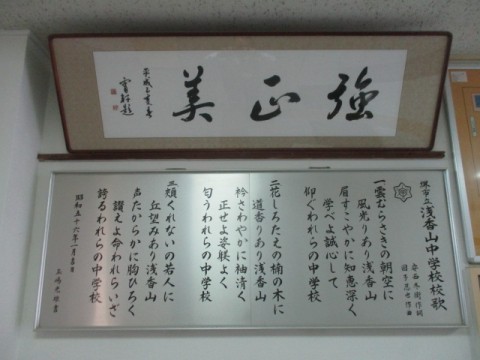 強正美
堺市立浅香山中学校校歌
一雲むらさきの朝空に
風光りあり浅香山
眉すこやかに知恵深く
学べよ誠心して
仰ぐわれらの中学校
二花しろたえの楠の木に
道香りあり浅香山
衿さわやかに袖清く
正せよ姿睽よく
匂うわれらの中学校
三頬くれないの若人に
丘望みあり浅香山
声たからかに胸ひろく
讃えよ命われらいざ
誇るわれらの中学校
昭和五十六年一月吉日